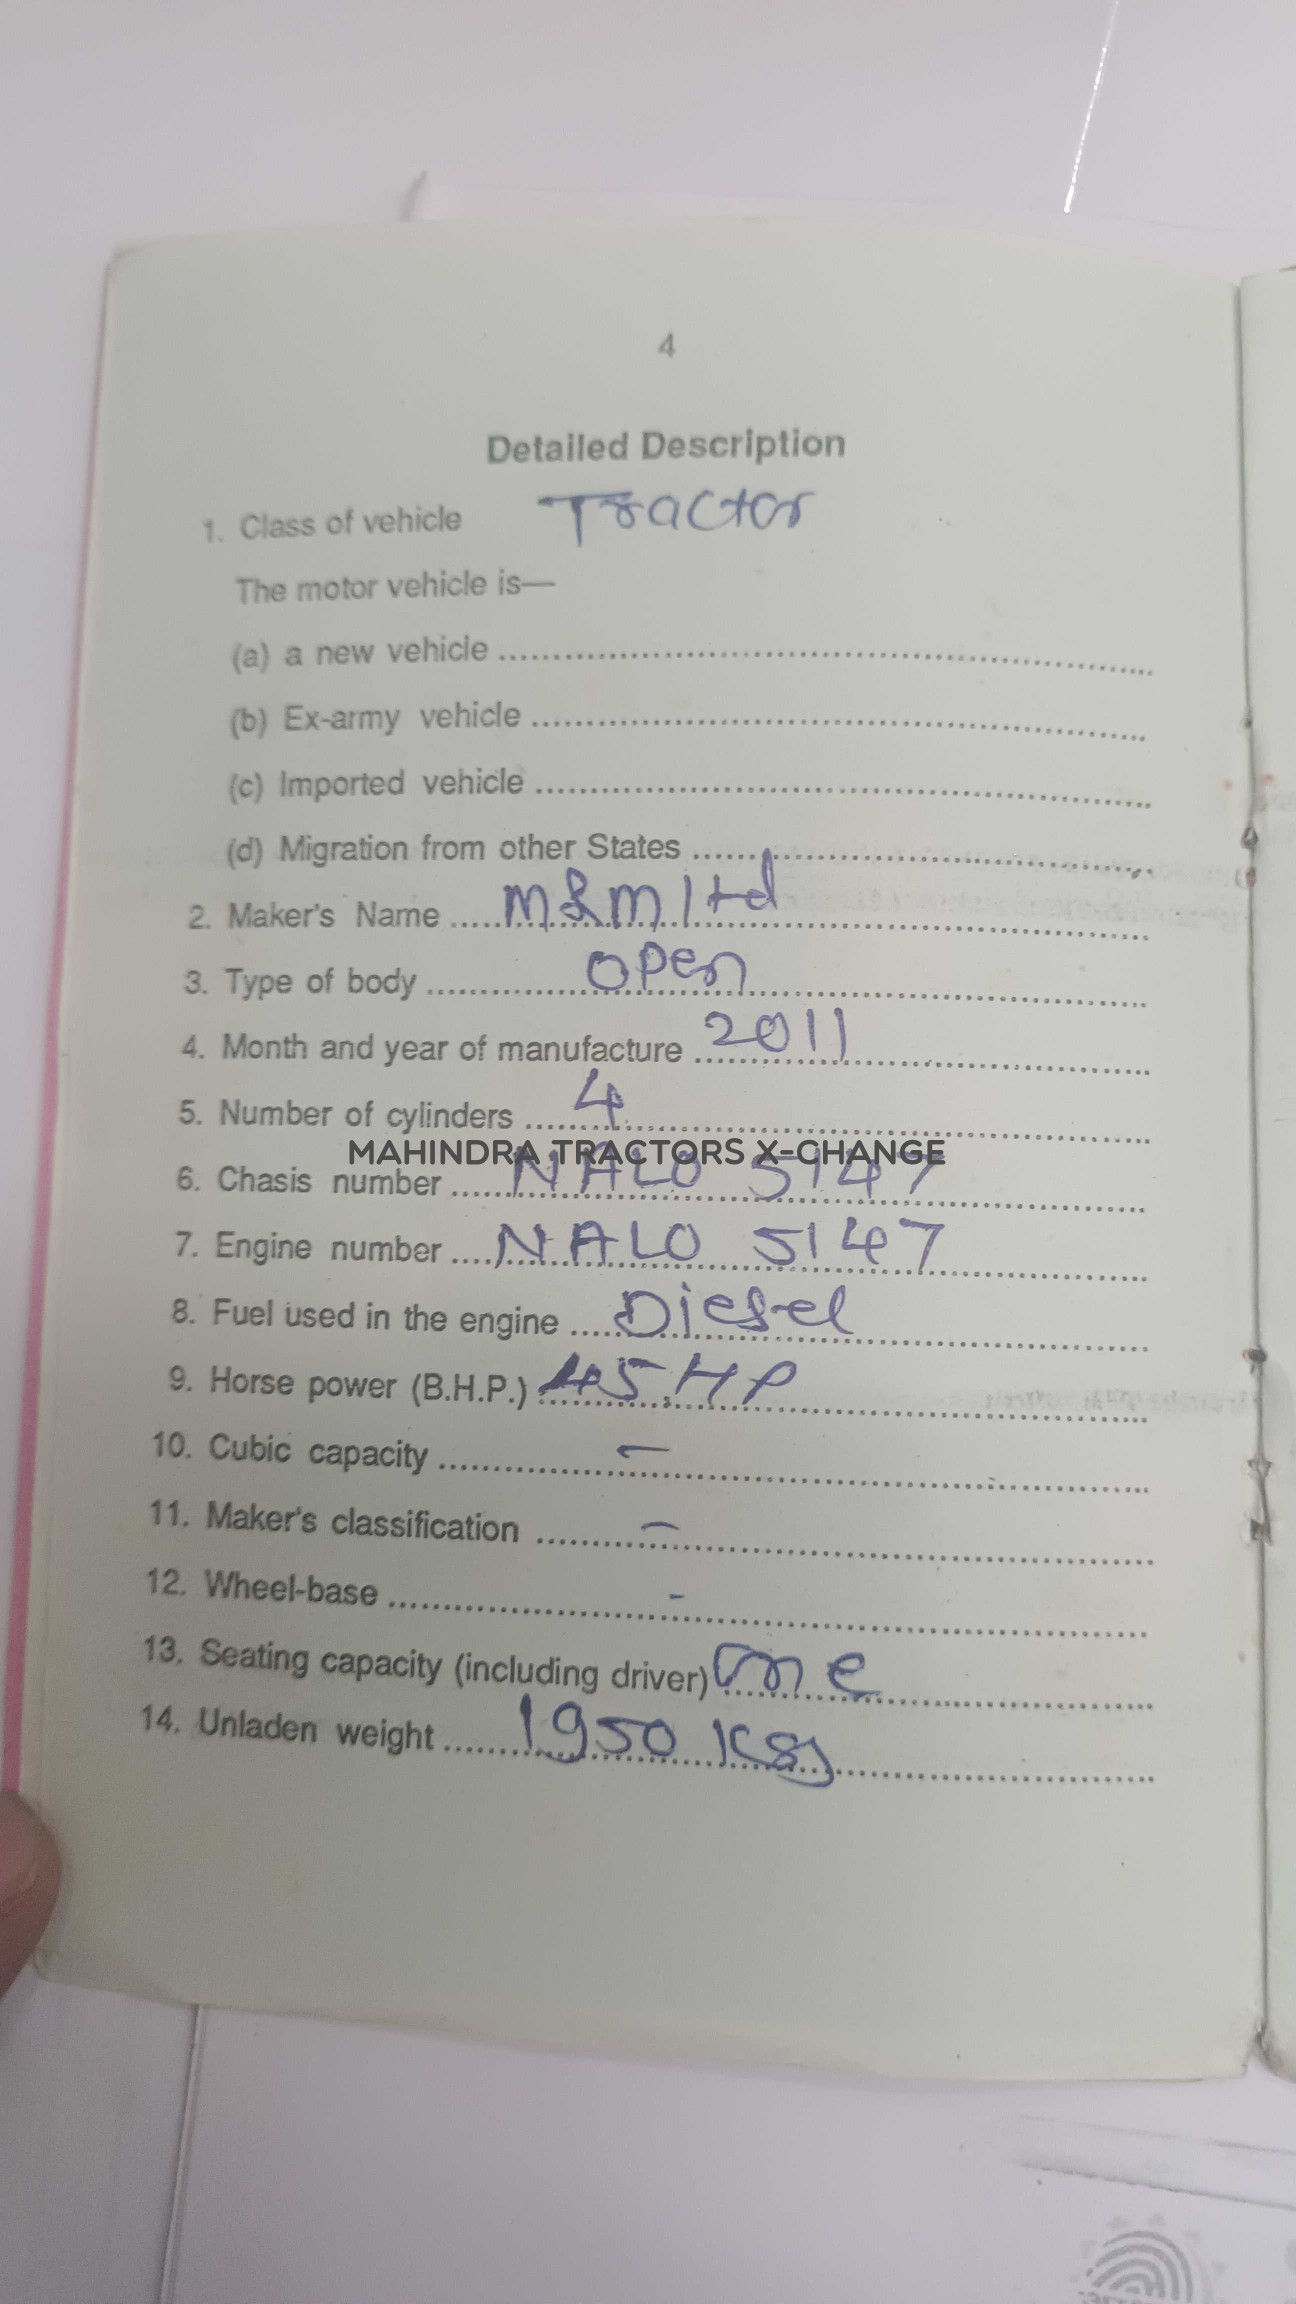 4
Detailed Description
1. Class of vehicle Tractor
The motor vehicle is—
(a) a new vehicle ..........
(b) Ex-army vehicle ..........
(c) Imported vehicle ..........
(d) Migration from other States ..........
2. Maker's Name ..... M&M ltd
3. Type of body ..... open
4. Month and year of manufacture 2011
5. Number of cylinders ..... 4
MAHINDRA TRACTORS X-CHANGE
6. Chasis number ..... NALO 5147
7. Engine number .... NALO 5147
8. Fuel used in the engine ..... Diesel
9. Horse power (B.H.P.) 45 HP
10. Cubic capacity ..... –
11. Maker's classification ..... –
12. Wheel-base ..... -
13. Seating capacity (including driver) one
14. Unladen weight ..... 1950 Kgs